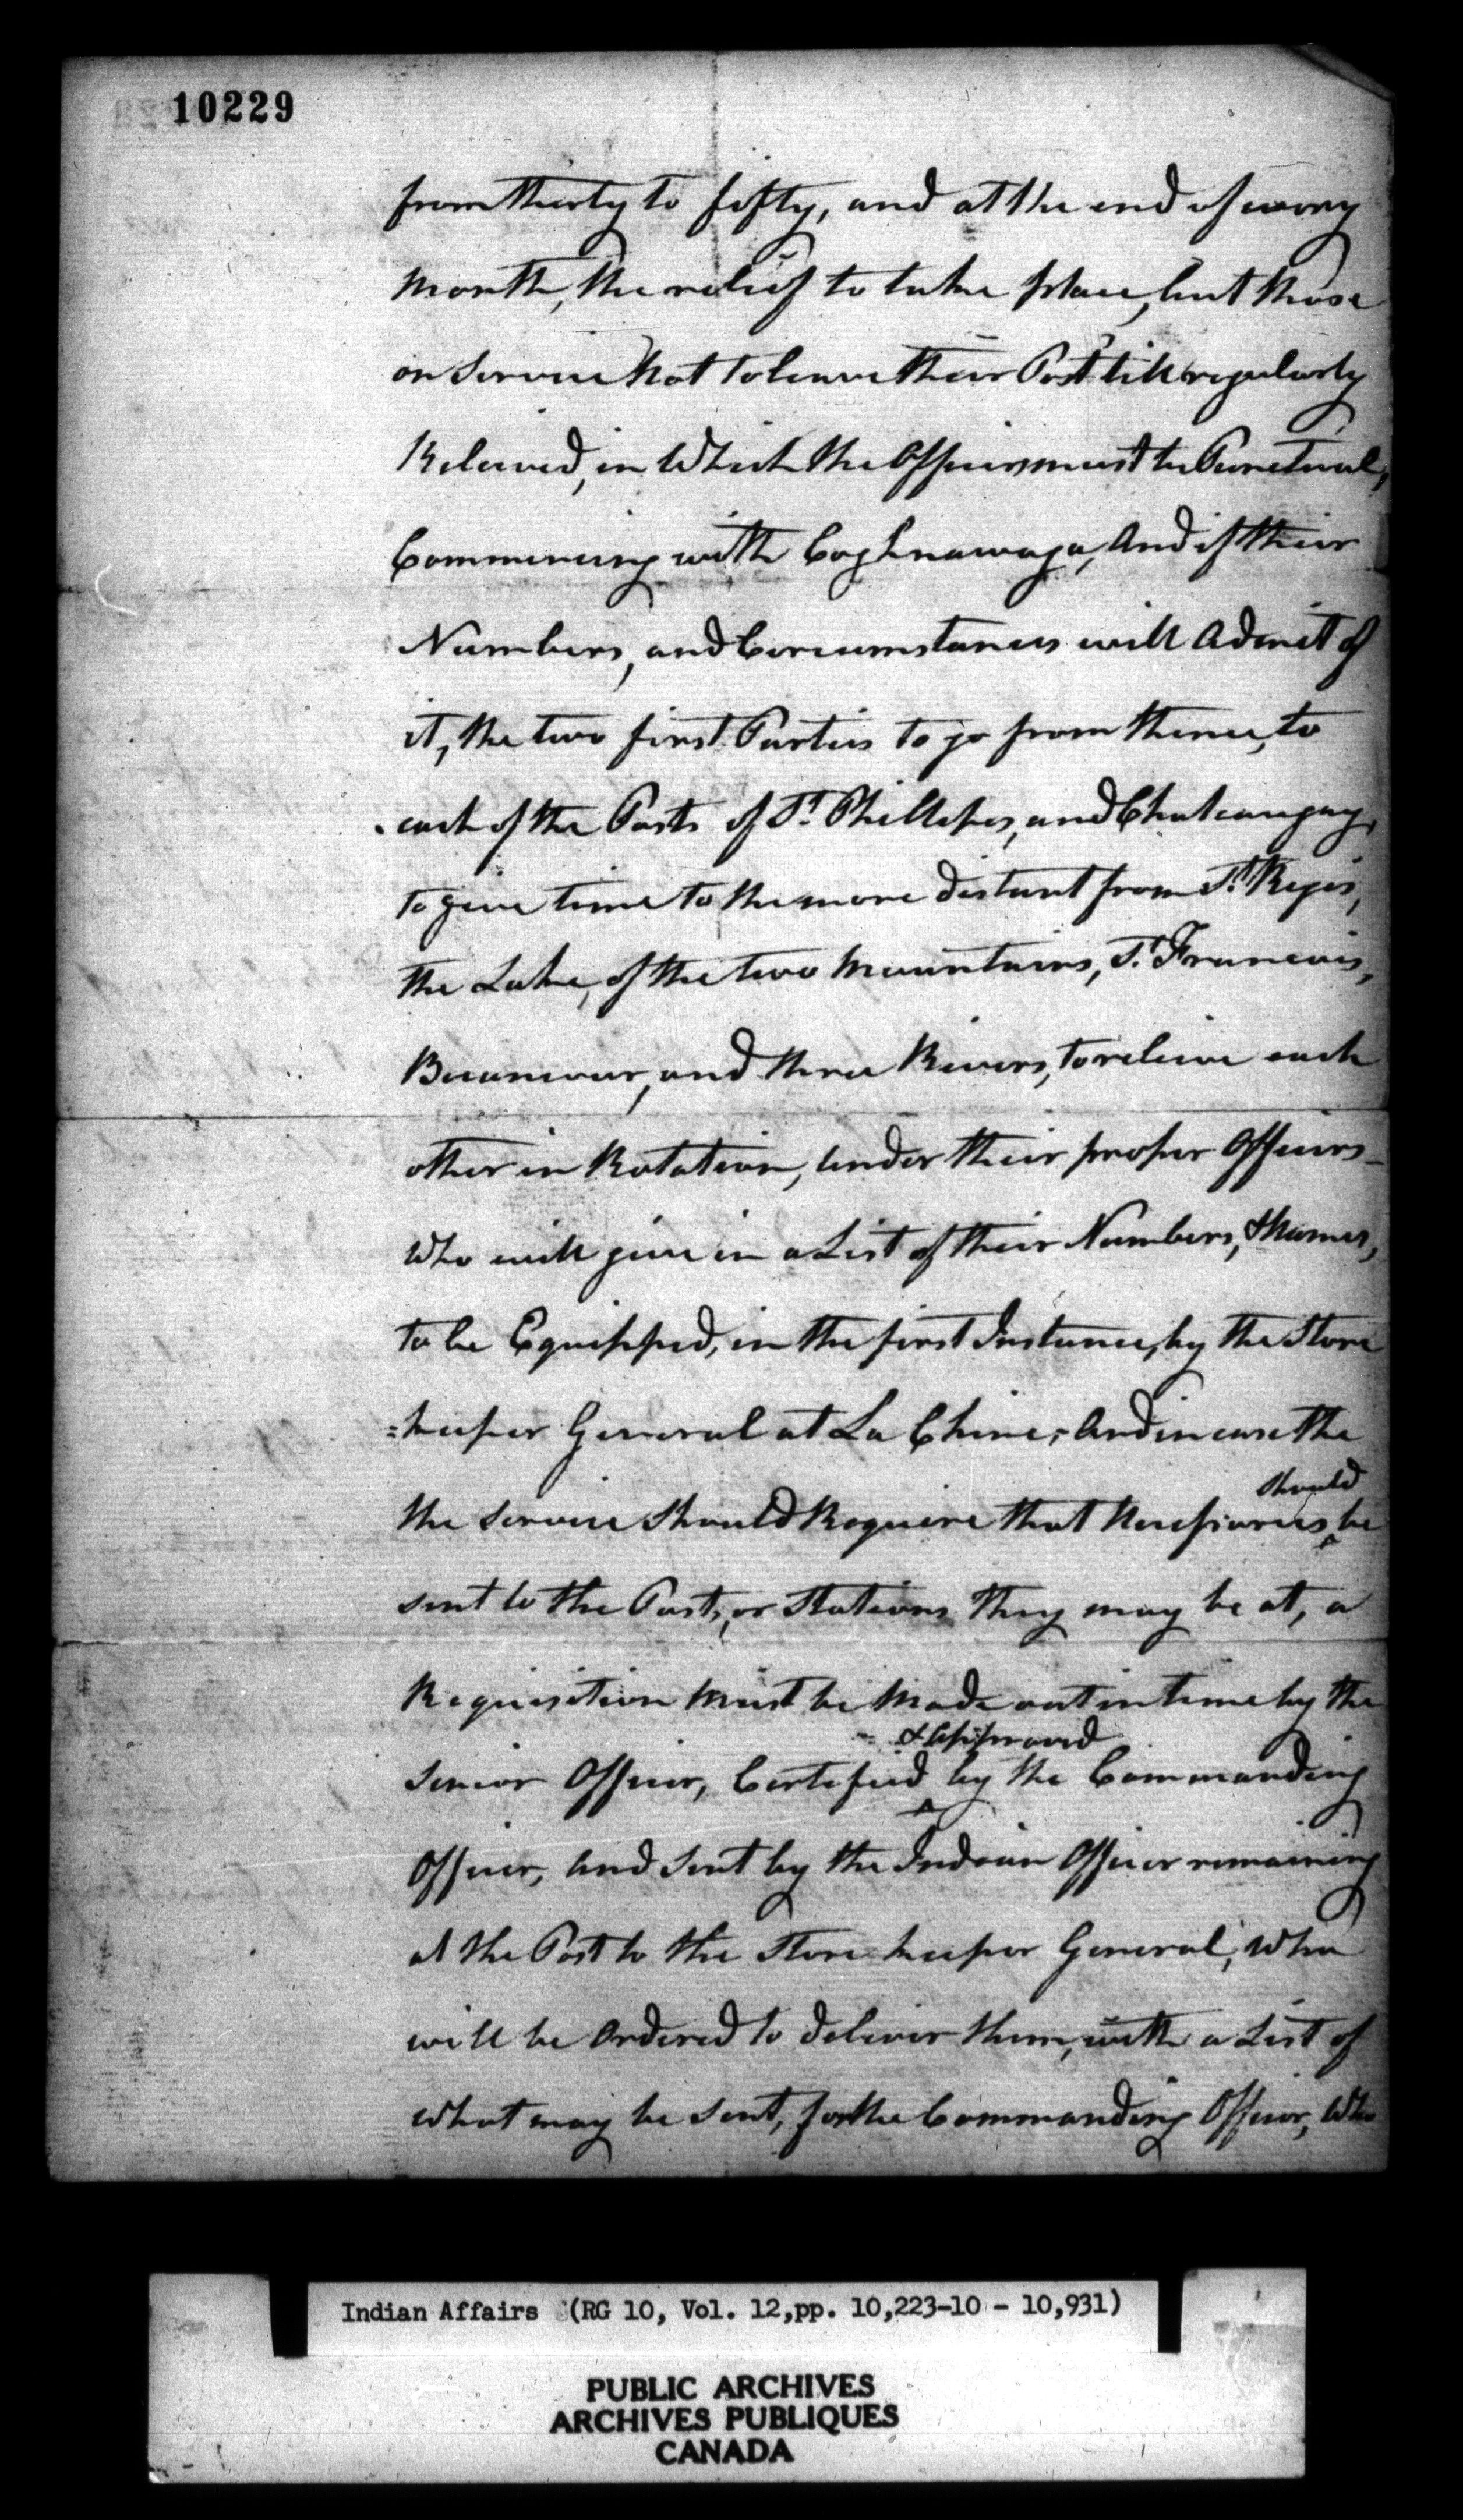 10229
from thirty to fifty, and at the end of every
month, the relief to take place, but those
on Service Not to leave their Post till regularly
Releived, in Which the Officers must be Punctual,
Commencing with Coghnawaga, And if their
Numbers, and Circumstances will Admit of
it, the two first Parties to go from thence, to
each of the Posts of St. Phillipes, and Chateaugay,
to give time to the more distant from St. Regis,
the Lake, of the two Mountains, St. Francois,
Becancour, and three Rivers, to releive each
other in Rotation, under their proper Officers
Who will give in a List of their Numbers, & Names,
to be Equipped, in the first Instance, by the Store
=keeper General at La Chine, And in case the
the Service should Require that Necessaries should be
sent to the Posts, or Stations they may be at, a
Requisition Must be Made out in time by the
Senior Officer, Certified & Approved by the Commanding
Officer, And Sent by the Indian Officer remaining
at the Post to the Store keeper General, Who
will be Ordered to deliver them, with a List of
What may be Sent, for the Commanding Officer, Who
Indian Affairs (RG 10, Vol. 12,pp. 10,223-10 - 10,931)
PUBLIC ARCHIVES
ARCHIVES PUBLIQUES
CANADA